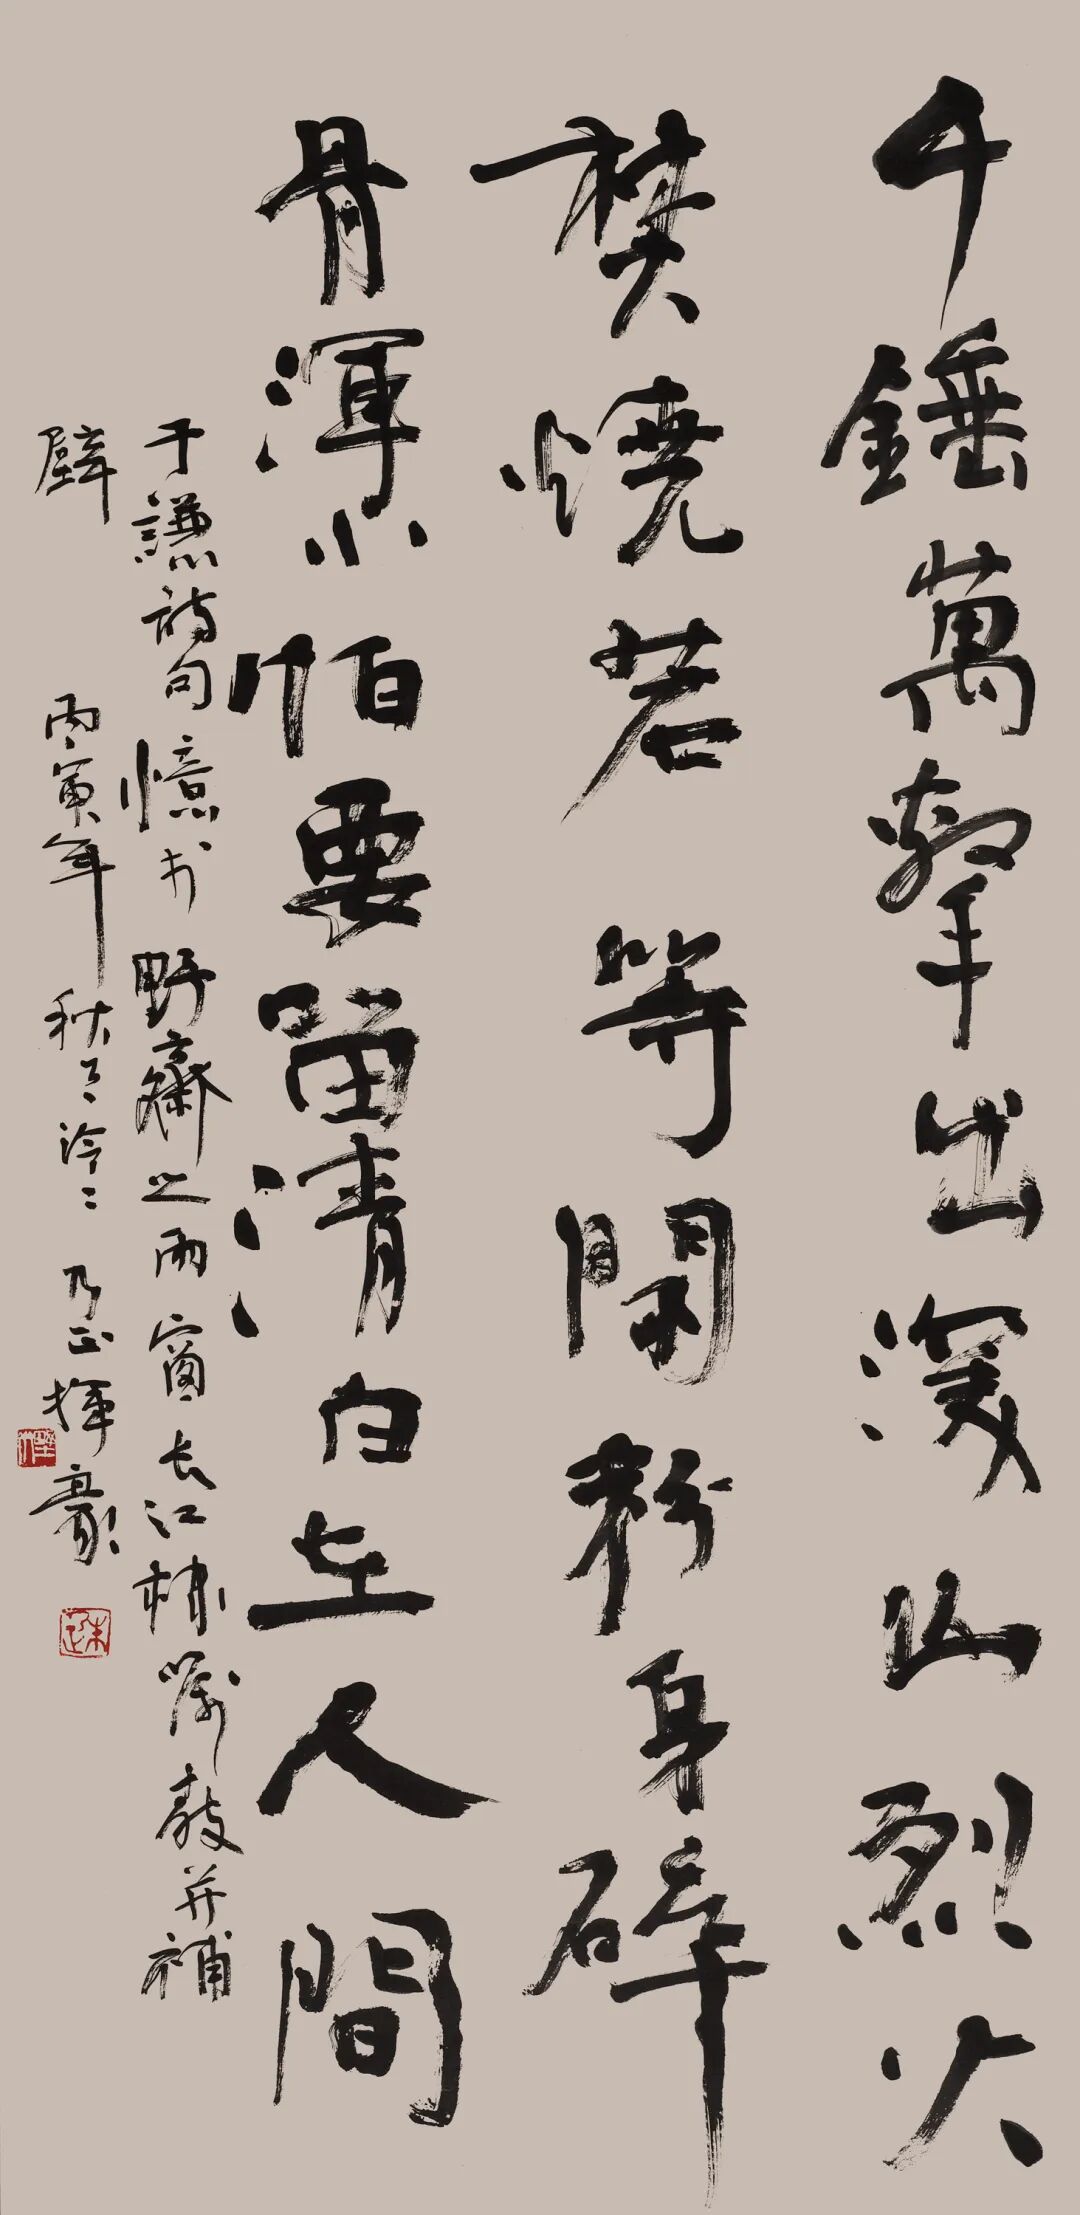 千錘萬擊出深山烈火
焚燒若等閑粉身碎
骨渾不怕要留清白在人間
于謙詩句憶於野齋之雨窗長江棣囑教并補
壁 丙寅年秋泠泠 乃正揮豪